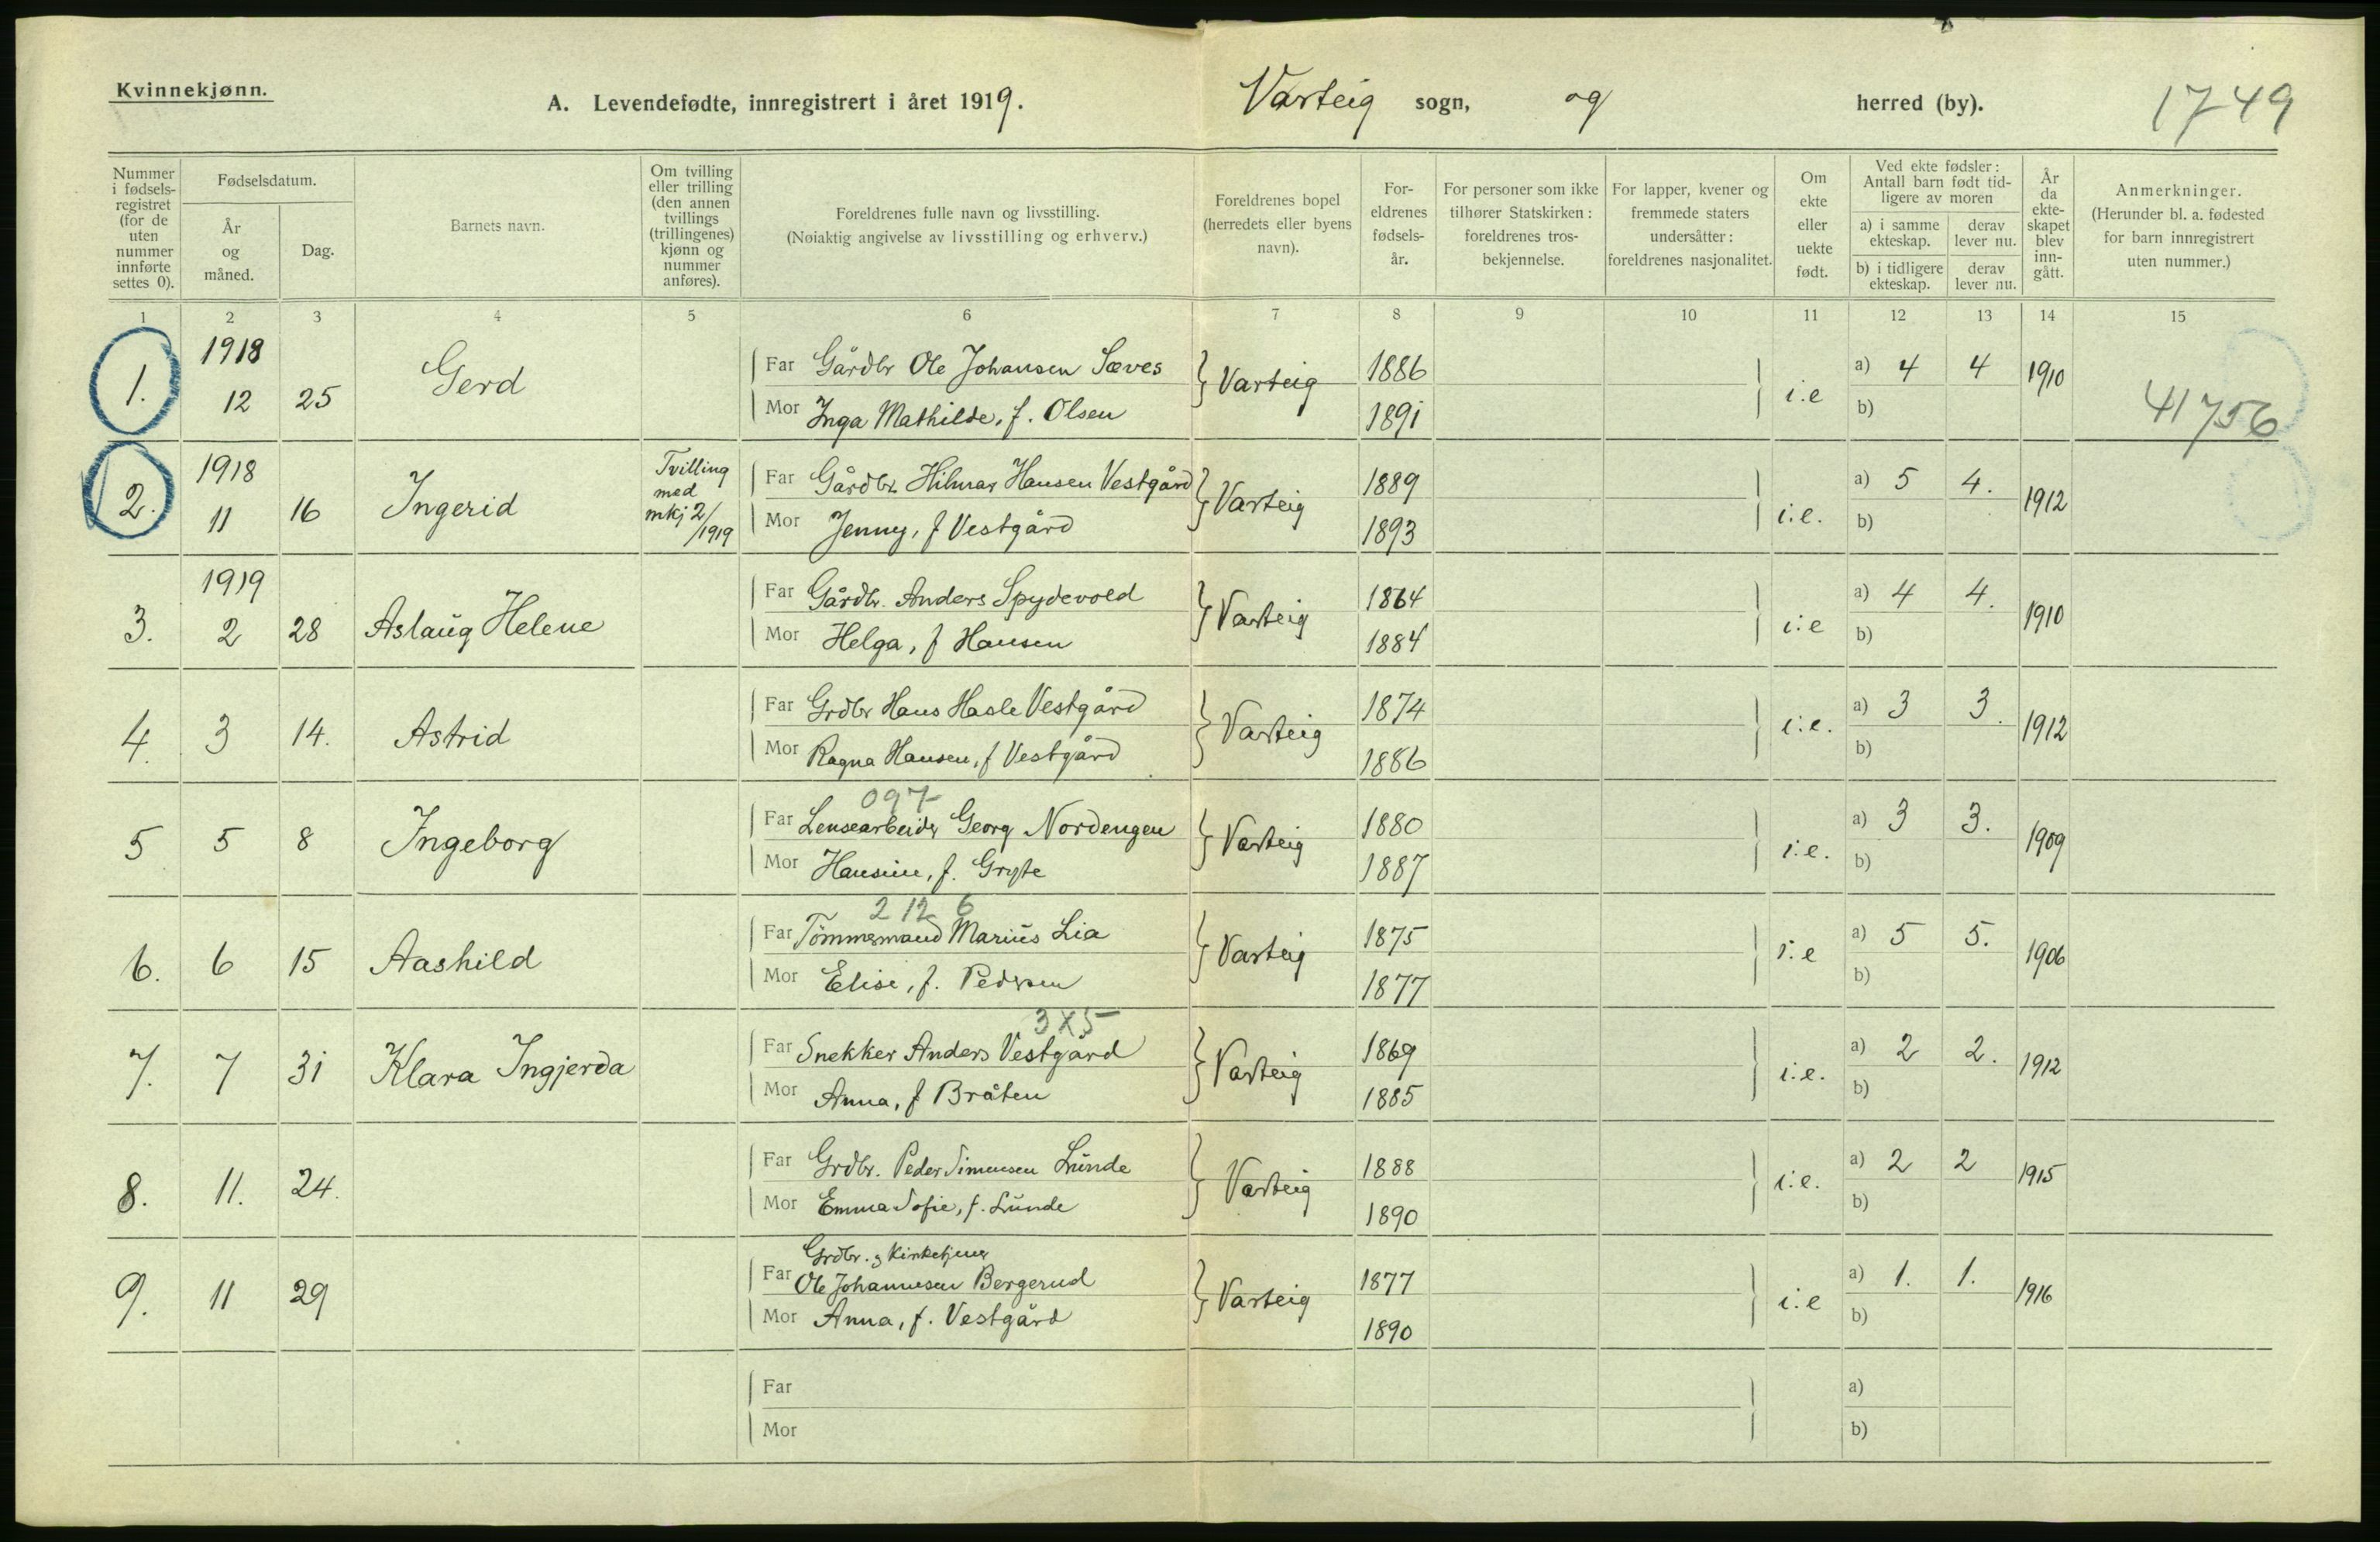 Kvinnekjønn.
A. Levendefødte, innregistrert i året 1919.
Varteig sogn, og herred (by).
1749
Nummer i fødsels-registret (for de uten nummer innførte settes 0).
Fødselsdatum.
År og måned.
Dag.
Barnets navn.
Om tvilling eller trilling (den annen tvillings (trillingenes) kjønn og nummer anføres).
Foreldrenes fulle navn og livsstilling.
(Nøiaktig angivelse av livsstilling og erhverv.)
Foreldrenes bopel (herredets eller byens navn).
For-eldrenes fødsels-år.
For personer som ikke tilhører Statskirken: foreldrenes tros-bekjennelse.
For lapper, kvener og fremmede staters undersåtter: foreldrenes nasjonalitet.
Om ekte eller uekte født.
Ved ekte fødsler: Antall barn født tid-ligere av moren
a) i samme ekteskap.
derav lever nu.
b) i tidligere ekteskap.
derav lever nu.
År da ekte-skapet blev inn-gått.
Anmerkninger.
(Herunder bl. a. fødested for barn innregistrert uten nummer.)
1 2 3 4 5 6 7 8 9 10 11 12 13 14 15
1. 1918 12 25 Gerd
Far Gårdbr Ole Johansen Sæves Varteig 1886 i:e a) 4 4 1910
Mor Inga Mathilde, f. Olsen 1891 b)
41756
2. 1918 11 16 Ingerid Tvilling med mkj 2/1919
Far Gårdbr Hilmar Hansen Vestgård Varteig 1889 i:e. a) 5 4. 1912
Mor Jenny, f Vestgård 1893 b)
3. 1919 2 28 Aslaug Helene
Far Gårdbr. Anders Spydevold Varteig 1864 i:e a) 4 4. 1910
Mor Helga, f Hansen 1884 b)
4. 3 14. Astrid
Far Grdbr Hans Hasle Vestgård Varteig 1874 i:e. a) 3 3. 1912
Mor Ragna Hansen, f Vestgård 1886 b)
097
5 5 8 Ingeborg
Far Lensearbeider Georg Nordengen Varteig 1880 i:e. a) 3 3. 1909
Mor Hansine, f. Gryte 1887 b)
212 6
6. 6 15 Aashild
Far Tömmermand Marius Lia Varteig 1875 i:e a) 5 5. 1906
Mor Elise, f. Pedersen 1877 b)
3X5
7. 7 31 Klara Ingjerda
Far Snekker Anders Vestgård Varteig 1869 i:e. a) 2 2. 1912
Mor Anna, f Bråten 1885 b)
8. 11. 24.
Far Grdbr. Peder Simensen Lunde Varteig 1888 i:e. a) 2 2 1915
Mor Emma Sofie, f. Lunde 1890 b)
Grdbr. & Kirketjener
9. 11 29
Far Ole Johannesen Bergerud Varteig 1877 i:e a) 1. 1. 1916
Mor Anna, f. Vestgård 1890 b)
Far a)
Mor b)